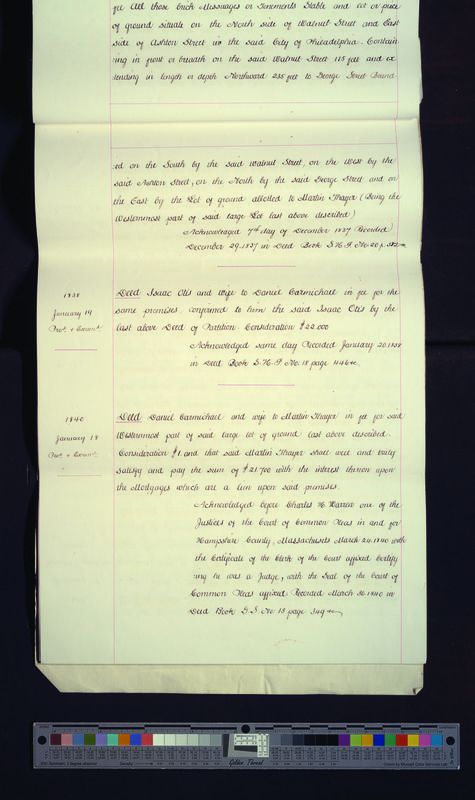 fee All those brick Messuages or Tenements Stable and lot or piece
of ground situate on the North side of Walnut Street and East
side of Ashton Street in the said City of Philadelphia. Contain
ing in front or breadth on the said Walnut Street 115 feet and ex
tending in length or depth Northward 235 feet to George Street Bound
ed on the South by the said Walnut Street, on the West by the
said Ashton Street, on the North by the said George Street and on
the East by the Lot of ground allotted to Martin Thayer (Being the
Westernmost part of said large Lot last above described)
Acknowledged 7th day of December 1837 Recorded
December 29. 1837 in Deed Book S.H.F. No. 20 p.
1838
January 19
Deed Isaac Otis and Wife to Daniel Carmichael in fee for the
same premises conformed to him the said Isaac Otis by the
last above Deed of Partition. Consideration $22.000
Acknowledged same day Recorded January 20. 1838
in Deed Book S.H.F. No. 18 page 446 &c.
1840
January 18
Deed Daniel Carmichael and wife to Martin Thayer in fee for said
Westernmost part of said large lot of ground last above described.
Consideration $1 and that said Martin Thayer shall well and truly
satisfy and pay the sum of $21,700 with the interest thereon upon
the Mortgages which are a lien upon said premises.
Acknowledged before Charles H. Warren one of the
Justices of the Court of Common Pleas in and for
Hampshire County, Massachusetts March 24. 1840 with
the Certificate of the Clerk of the Court affixed Certify
ing he was a Judge, with the Seal of the Court of
Common Pleas affixed. Recorded March 30. 1840 in
Deed Book G.S. No. 15 page 349 &c